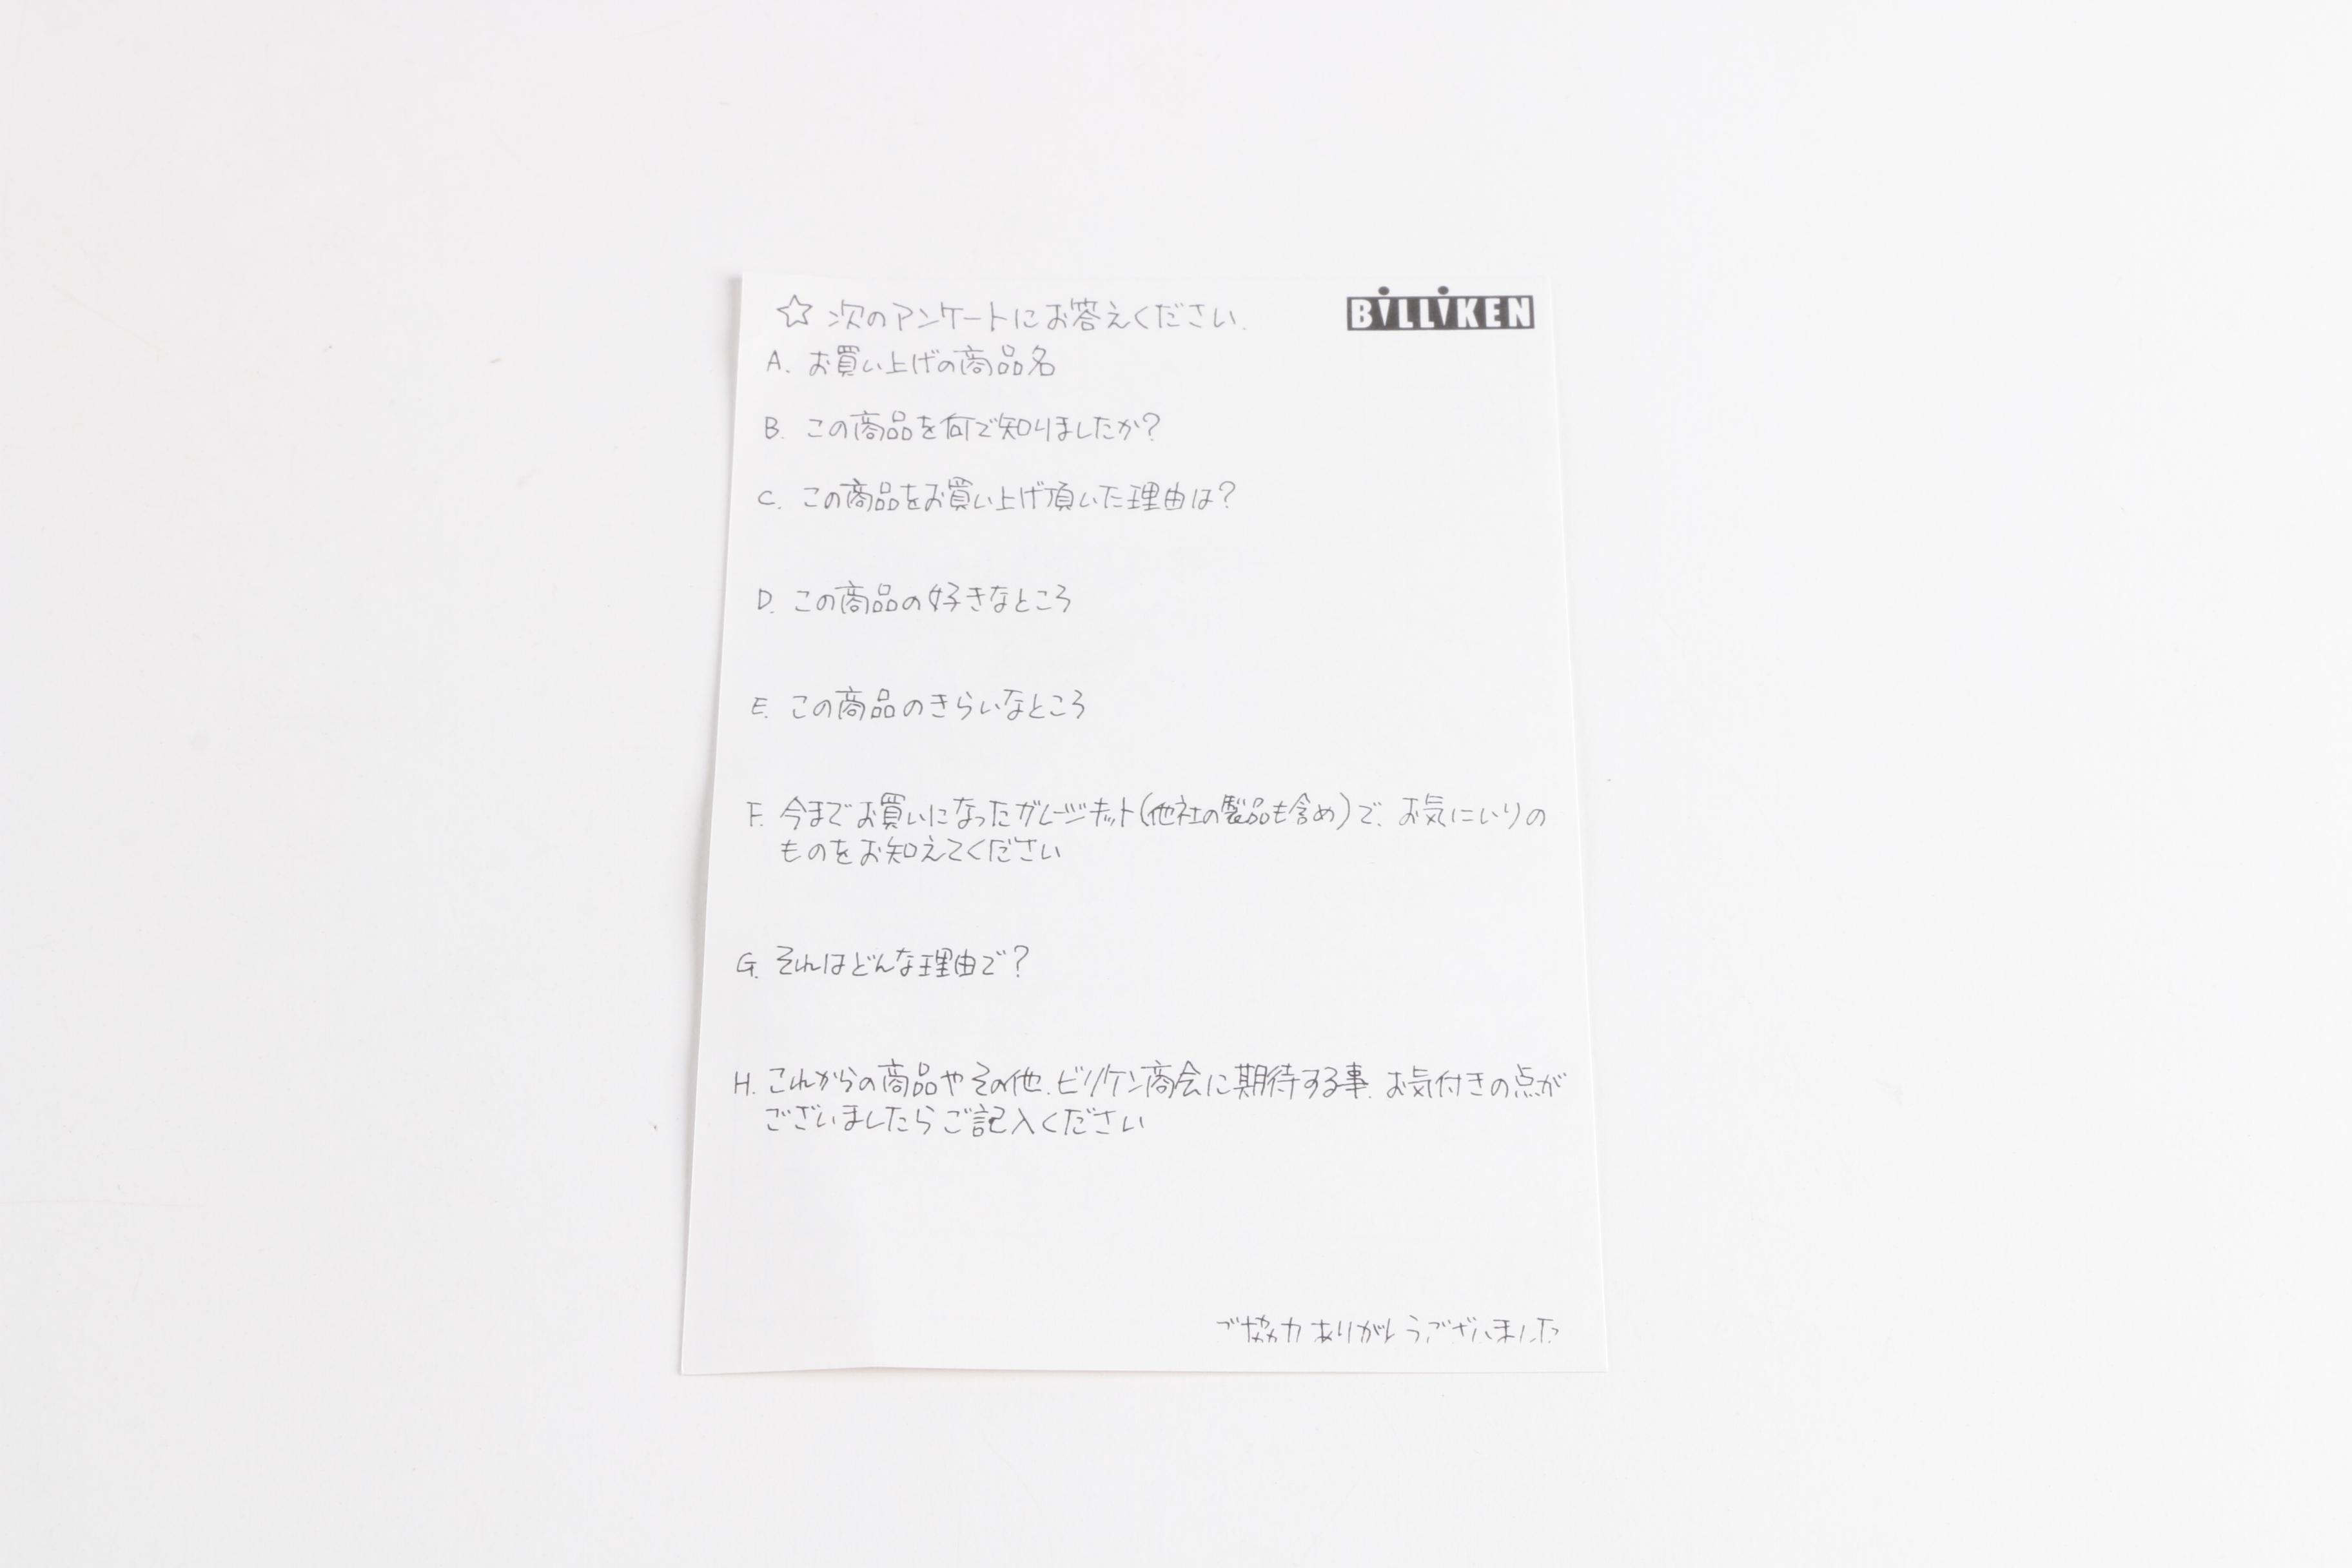 ☆ 次のアンケートにお答えください.
BILLIKEN
A. お買い上げの商品名
B. この商品を何で知りましたか?
C. この商品をお買い上げ頂いた理由は?
D. この商品の好きなところ
E. この商品のきらいなところ
F. 今までお買いになったガレージキット(他社の製品も含め)で、お気にいりの
ものをお知えてください
G. それはどんな理由で?
H. これからの商品やその他、ビリケン商会に期待する事、お気付きの点が
ございましたらご記入ください
ご協力ありがとうございました